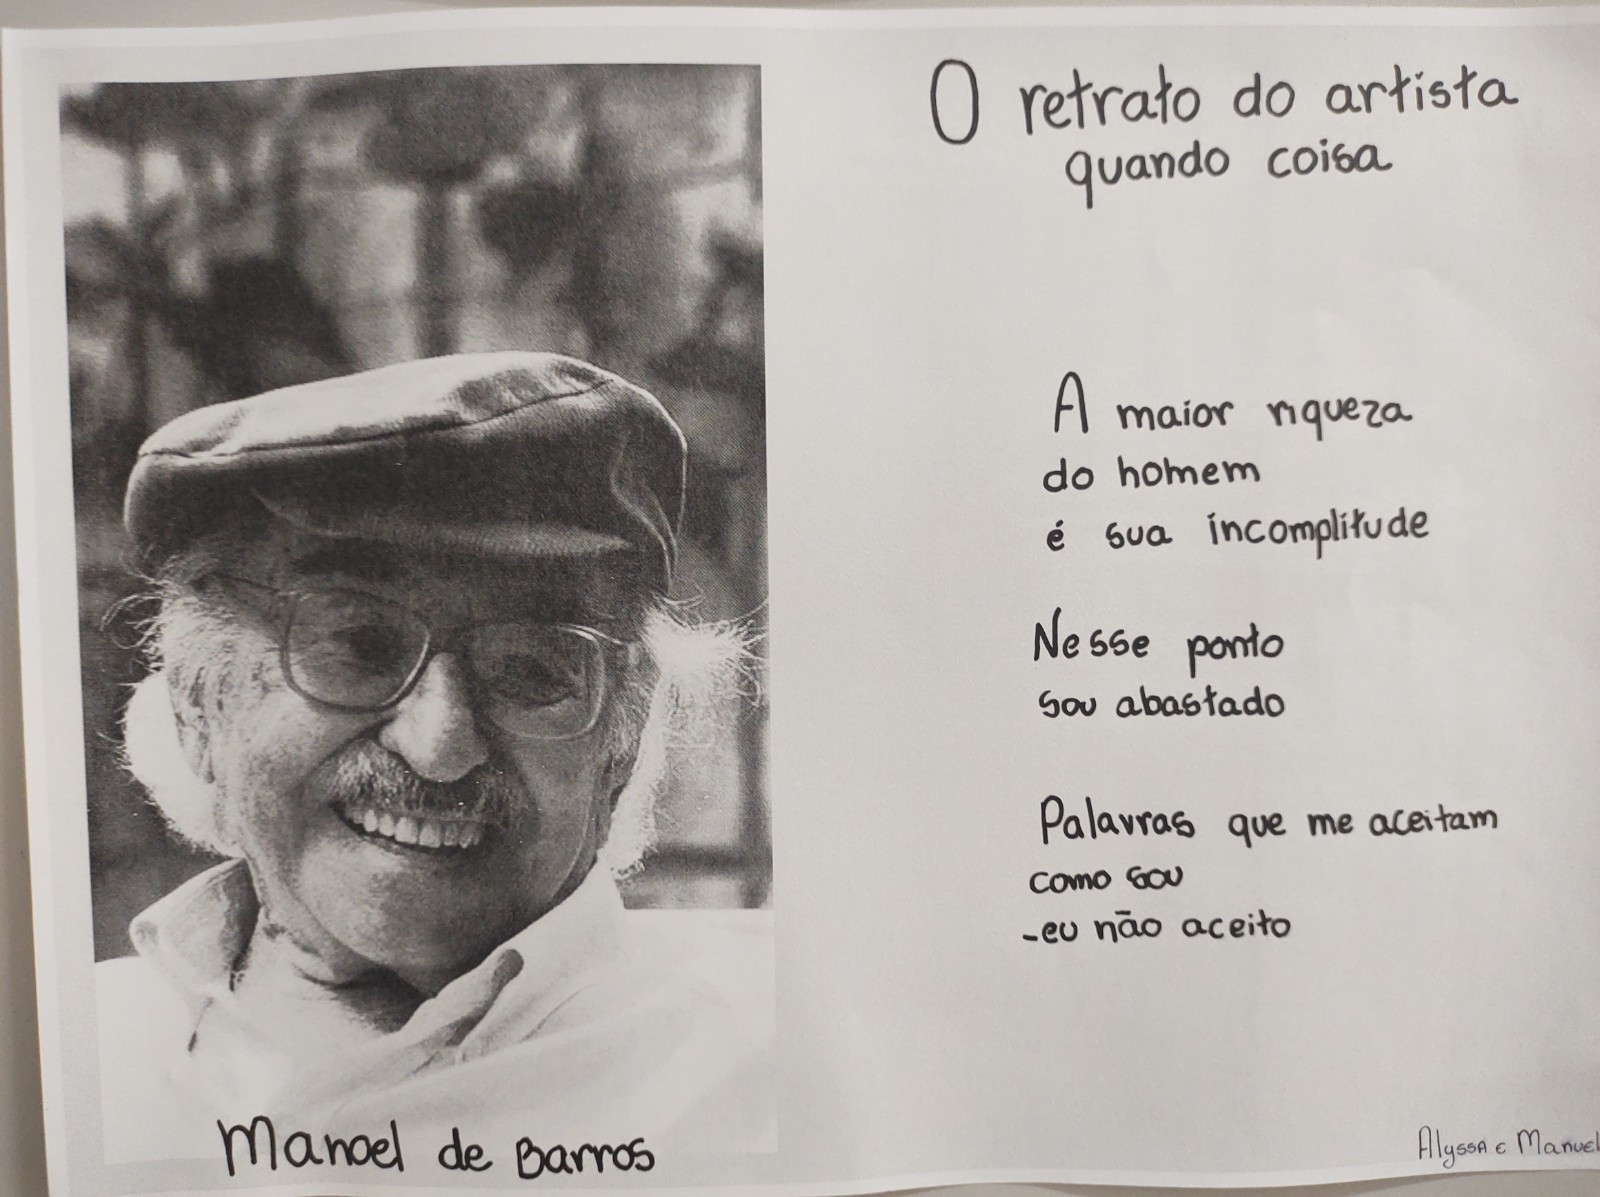 O retrato do artista
quando coisa
A maior riqueza
do homem
é sua incomplitude
Nesse ponto
sou abastado
Palavras que me aceitam
como sou
-eu não aceito
Manoel de Barros
Alyssa e Manuel